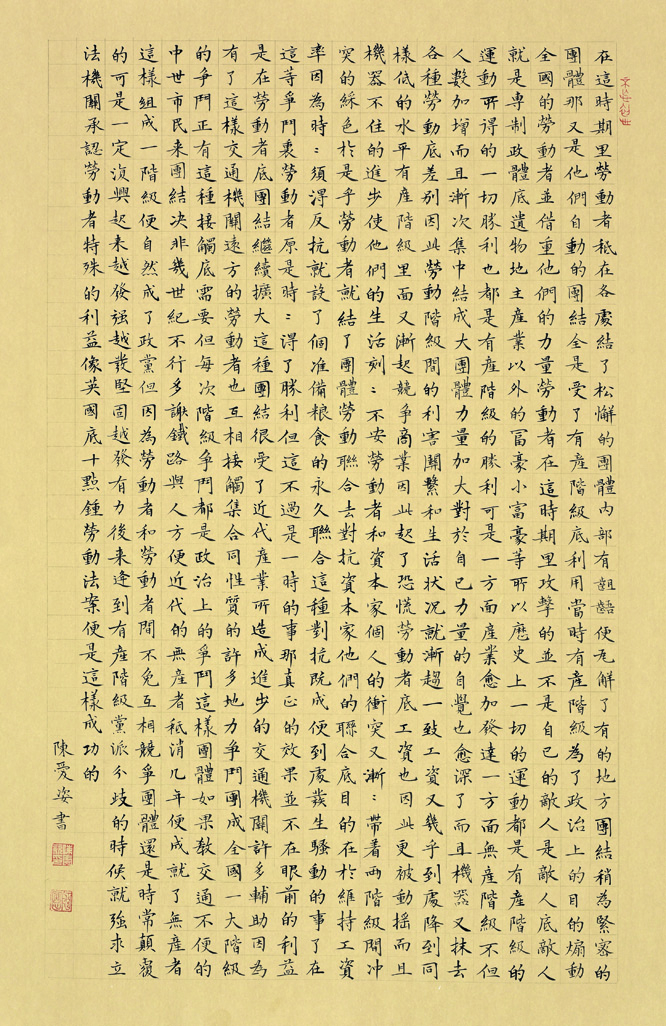 在這時期里勞動者秖在各處結了松懈的團體内部有齟齬便瓦解了有的地方團結稍為緊密的
團體那又是他們自動的團結全是受了有産階級底利用當時有産階級為了政治上的目的煽動
全國的勞動者並借重他們的力量勞動者在這時期里攻擊的並不是自己的敵人是敵人底敵人
就是專制政體底遺物地主産業以外的冨豪小富豪等所以歷史上一切的運動都是有産階級的
運動所得的一切勝利也都是有産階級的勝利可是一方面産業愈加發達一方面無産階級不但
人數加增而且漸次集中結成大團體力量加大對於自己力量的自覺也愈深了而且機器又抹去
各種勞動底差別因此勞動階級間的利害關繫和生活狀况就漸趨一致工資又幾乎到處降到同
樣低的水平有産階級里面又漸起競爭商業因此起了恐慌勞動者底工資也因此更被動搖而且
機器不住的進步使他們的生活刻〻不安勞動者和資本家個人的衝突又漸〻帶着兩階級間冲
突的綵色於是乎勞動者就結了團體勞動聯合去對抗資本家他們的聯合底目的在於維持工資
率因為時〻須淂反抗就設了個准備粮食的永久聯合這種對抗既成便到處發生騷動的事了在
這等爭鬥裏勞動者原是時〻淂了勝利但這不過是一時的事那真正的效果並不在眼前的利益
是在勞動者底團結繼續擴大這種團結很受了近代産業所造成進步的交通機關許多輔助因為
有了這樣交通機關遠方的勞動者也互相接觸集合同性質的許多地力爭鬥團成全國一大階級
的爭鬥正有這種接觸底需要但每次階級爭鬥都是政治上的爭鬥這樣團體如果較交通不便的
中世市民来團結决非幾世紀不行多謝鐵路與人方便近代的無産者秖消几年便成就了無産者
這樣組成一階級便自然成了政黨但因為勞動者和勞動者間不免互相競爭團體還是時常顛覆
的可是一定復興起来越發强越發堅固越發有力後来逢到有産階級黨派分歧的時候就強求立
法機關承認勞動者特殊的利益像英國底十點鍾勞動法案便是這樣成功的
陳愛姿書